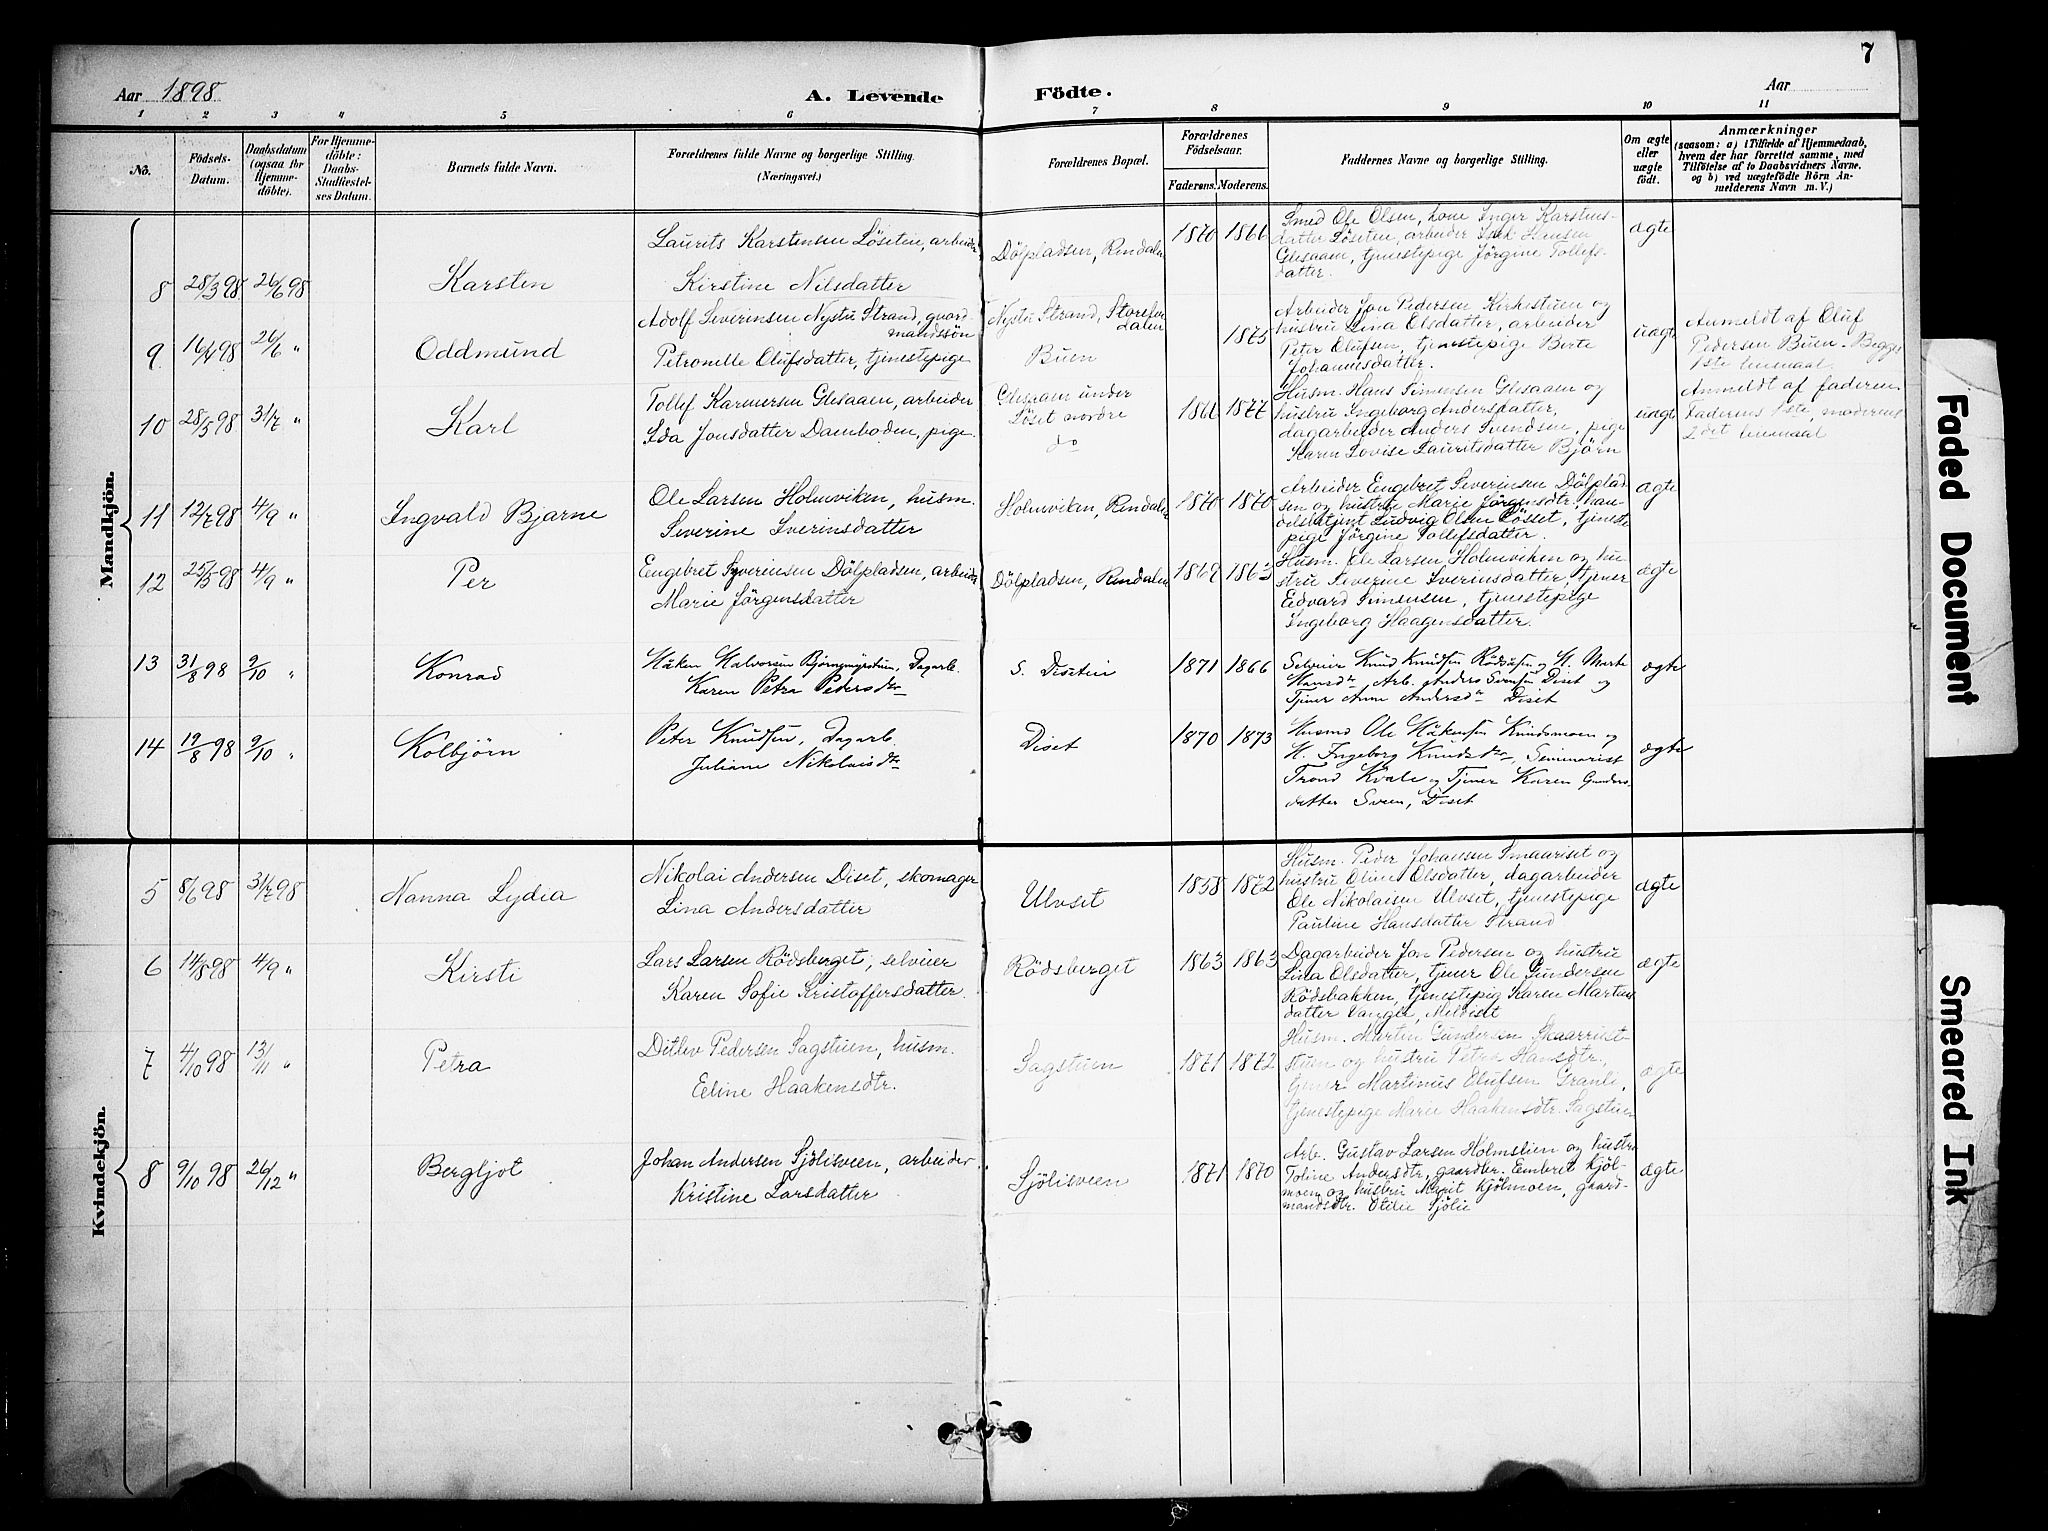 7
Aar 1898
A. Levende Födte.
Aar
1 2 3 4 5 6 7 8 9 10 11
No.
Födsels-
Datum.
Daabsdatum
(ogsaa for
Hjemme-
döbte).
For Hjemme-
döbte:
Daabs-
Stadfæstel-
ses Datum.
Barnets fulde Navn.
Forældrenes fulde Navne og borgerlige Stilling.
(Næringsvei.)
Forældrenes Bopæl.
Forældrenes
Födselsaar.
Faderens. Moderens.
Faddernes Navne og borgerlige Stilling.
Om ægte
eller
uægte
födt.
Anmærkninger
(saasom: a) i Tilfælde af Hjemmedaab,
hvem der har forrettet samme, med
Tilföielse af to Daabsvidners Navne.
og b) ved uægtefödte Börn An-
melderens Navn m. V.)
Mandkjön.
8 28/3 98 26/6 98 Karsten
Laurits Karstensen Löseten, arbeider
Kirstine Nilsdatter
Dölpladsen, Rendalen
1870 1866
Smed Ole Olsen, kone Inger Karstens-
datter Löseten, arbeider Isak Hansen
Glesaaen, tjenestepige Jörgine Tollefs-
datter.
ægte
9 16/4 98 26/6 " Oddmund
Adolf Severinsen Nystu Strand, gaard-
mandssön
Petronelle Olufsdatter, tjenestepige
Nystu Strand, Storelv-
dalen
Buen
1875
Arbeider Jon Pedersen Kirkestuen og
hustru Lina Olsdatter, arbeider
Peter Olufsen, tjenestepige Berte
Johannesdatter.
uægte
Anmeldt af Oluf
Pedersen Buen. Begges
1ste leiermaal
10 28/5 98 31/7 " Karl
Tollef Karmersen Glesaaen, arbeider
Ida Jonsdatter Damboden, pige
Glesaaen under
Löset nordre
do
1866 1877
Husm. Hans Simensen Glesaaen og
hustru Ingeborg Andersdatter,
dagarbeider Anders Svendsen, pige
Karen Lovise Lauritsdatter Björn
uægte
Anmeldt af faderen.
Faderens 1ste, moderens
2det leiermaal
11 12/7 98 4/9 " Ingvald Bjarne
Ole Larsen Holmviken, husm.
Severine Sverinsdatter
Holmviken, Rendalen
1870 1870
Arbeider Engebret Severinsen Dölplad-
sen og hustru Marie Jörgensdtr, han-
delsbetjent Ludvig Olsen Lösset, tjeneste-
pige Jörgine Tollefsdatter.
ægte
12 25/5 98 4/9 " Per
Engebret Syverinsen Dölpladsen, arbeider
Marie Jörgensdatter
Dölpladsen, Rendalen
1869 1863
Husm. Ole Larsen Holmviken og hu-
stru Severine Sverinsdatter, tjener
Edvard Simensen, tjenestepige
Ingeborg Haagensdatter.
ægte
13 31/8 98 9/10 " Konrad
Håken Halvorsen Björnmyrstuen, Dagarb.
Karen Petra Pedersdtr
S. Disetein
1871 1866
Selveier Knud Knudsen Rödsåsen og H. Marte
Hansdtr, Arb. Anders Svensen Diset og
Tjener Anne Andersdtr Diset
ægte
14 19/8 98 9/10 " Kolbjörn
Peter Knudsen, Dagarb.
Juliane Nikolaisdtr
Diset
1870 1873
Husmd Ole Håkensen Knudsmoen og
H. Ingeborg Knudsdtr, Seminarist
Trond Kvale og Tjener Karen Gunders-
datter Sveen, Diset
ægte
Kvindekjön.
5 8/6 98 31/7 98 Nanna Lydia
Nikolai Andersen Diset, skomager
Lina Andersdatter
Ulvset
1858 1872
Husm. Peder Johansen Smaariset og
hustru Oline Olsdatter, dagarbeider
Ole Nikolaisen Ulvset, tjenestepige
Pauline Hansdatter Strand
ægte
6 14/8 98 4/9 " Kirsti
Lars Larsen Rödsberget, selveier
Karen Sofie Kristoffersdatter.
Rödsberget
1863 1863
Dagarbeider Jon Pedersen og hustru
Lina Olsdatter, tjener Ole Gundersen
Rödsbakken, tjenestepig Karen Martins-
datter Vangen, Meldiset
ægte
7 4/10 98 13/11 " Petra
Ditlev Pedersen Sagstuen, husm.
Eline Haakensdtr.
Sagstuen
1871 1872
Husm. Martin Gundersen Skaarrust-
stuen og hustru Petra Hansdtr,
tjener Martinus Olufsen Granli,
tjenestepige Marie Haakensdtr. Sagstuen
ægte
8 9/10 98 26/12 " Bergljot
Johan Andersen Sjölisveen, arbeider
Kristine Larsdatter
Sjölisveen
1871 1870
Arb. Gustav Larsen Holmslien og hustru
Toline Andersdtr, gaardbr. Embret Kjöl-
moen og hustru Marit Kjölmoen, gaard-
mandsdtr. Otilie Sjölie
ægte
Faded Document
Smeared Ink